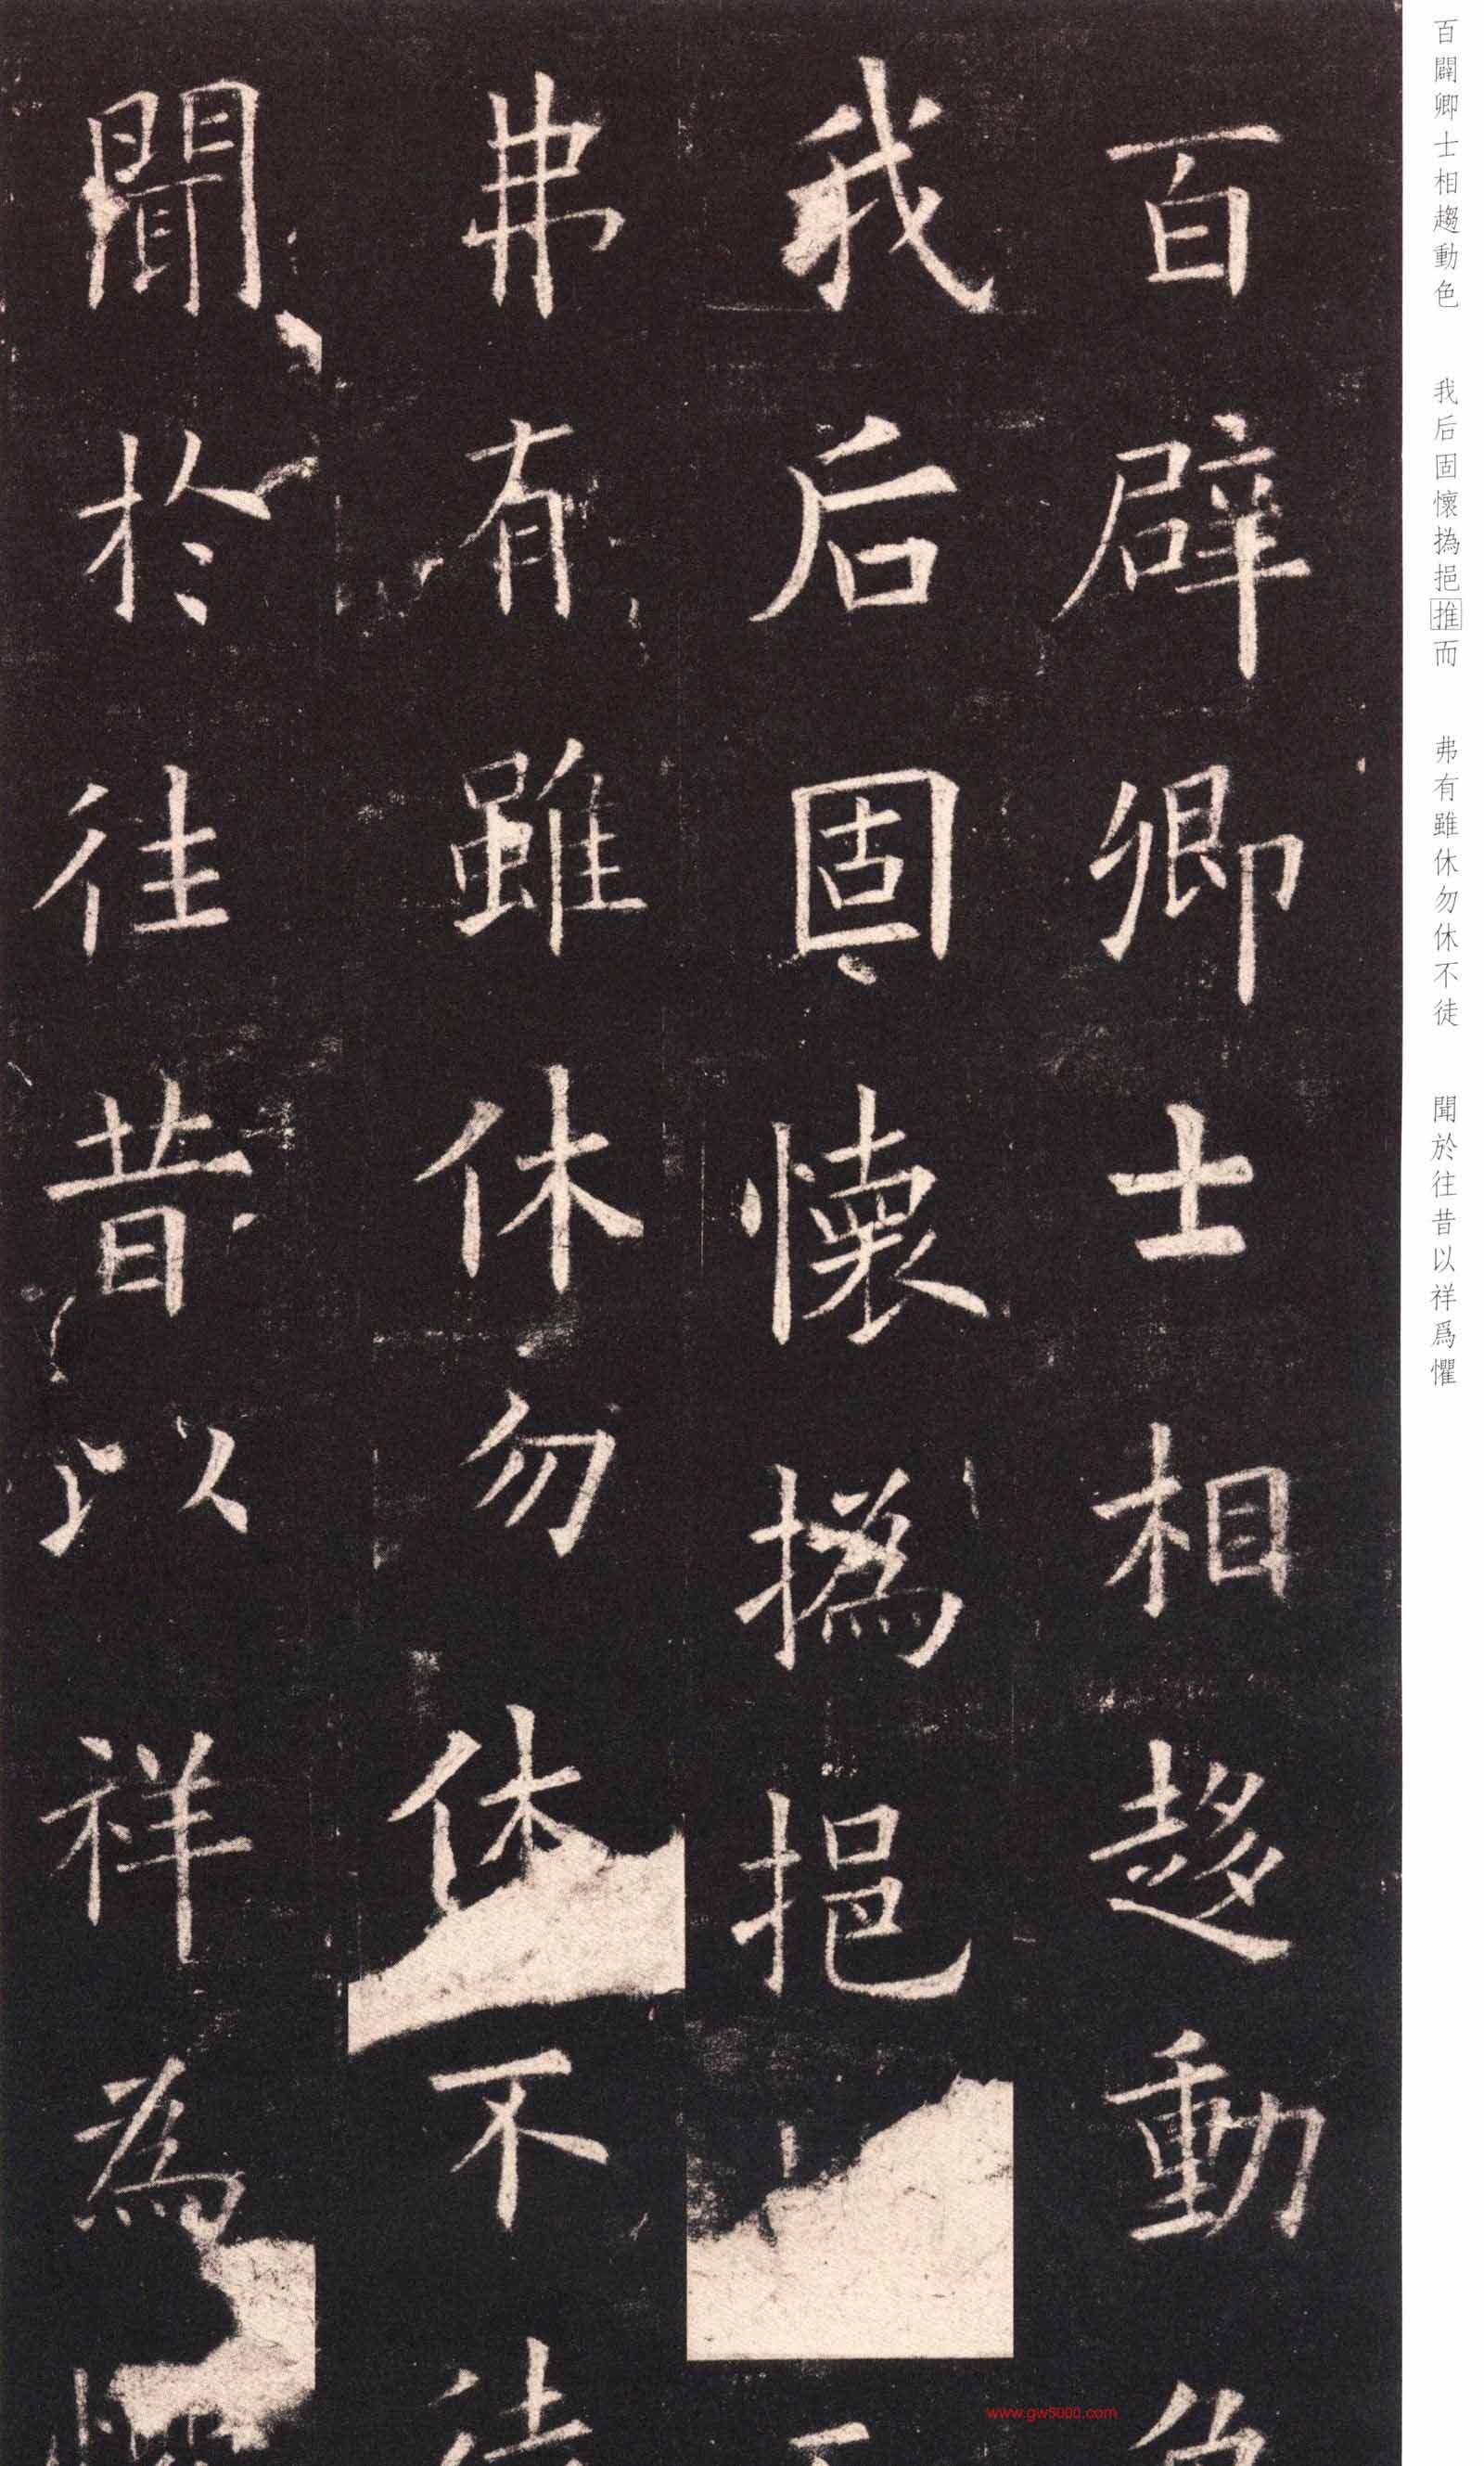 百闢卿士相趨動色
我后固懷撝挹推而
弗有雖休勿休不徒
聞於往昔以祥爲懼
百辟卿士相趍動色
我后固懷撝挹
弗有雖休勿休不徒
聞於徃昔以祥為
www.gw5000.com